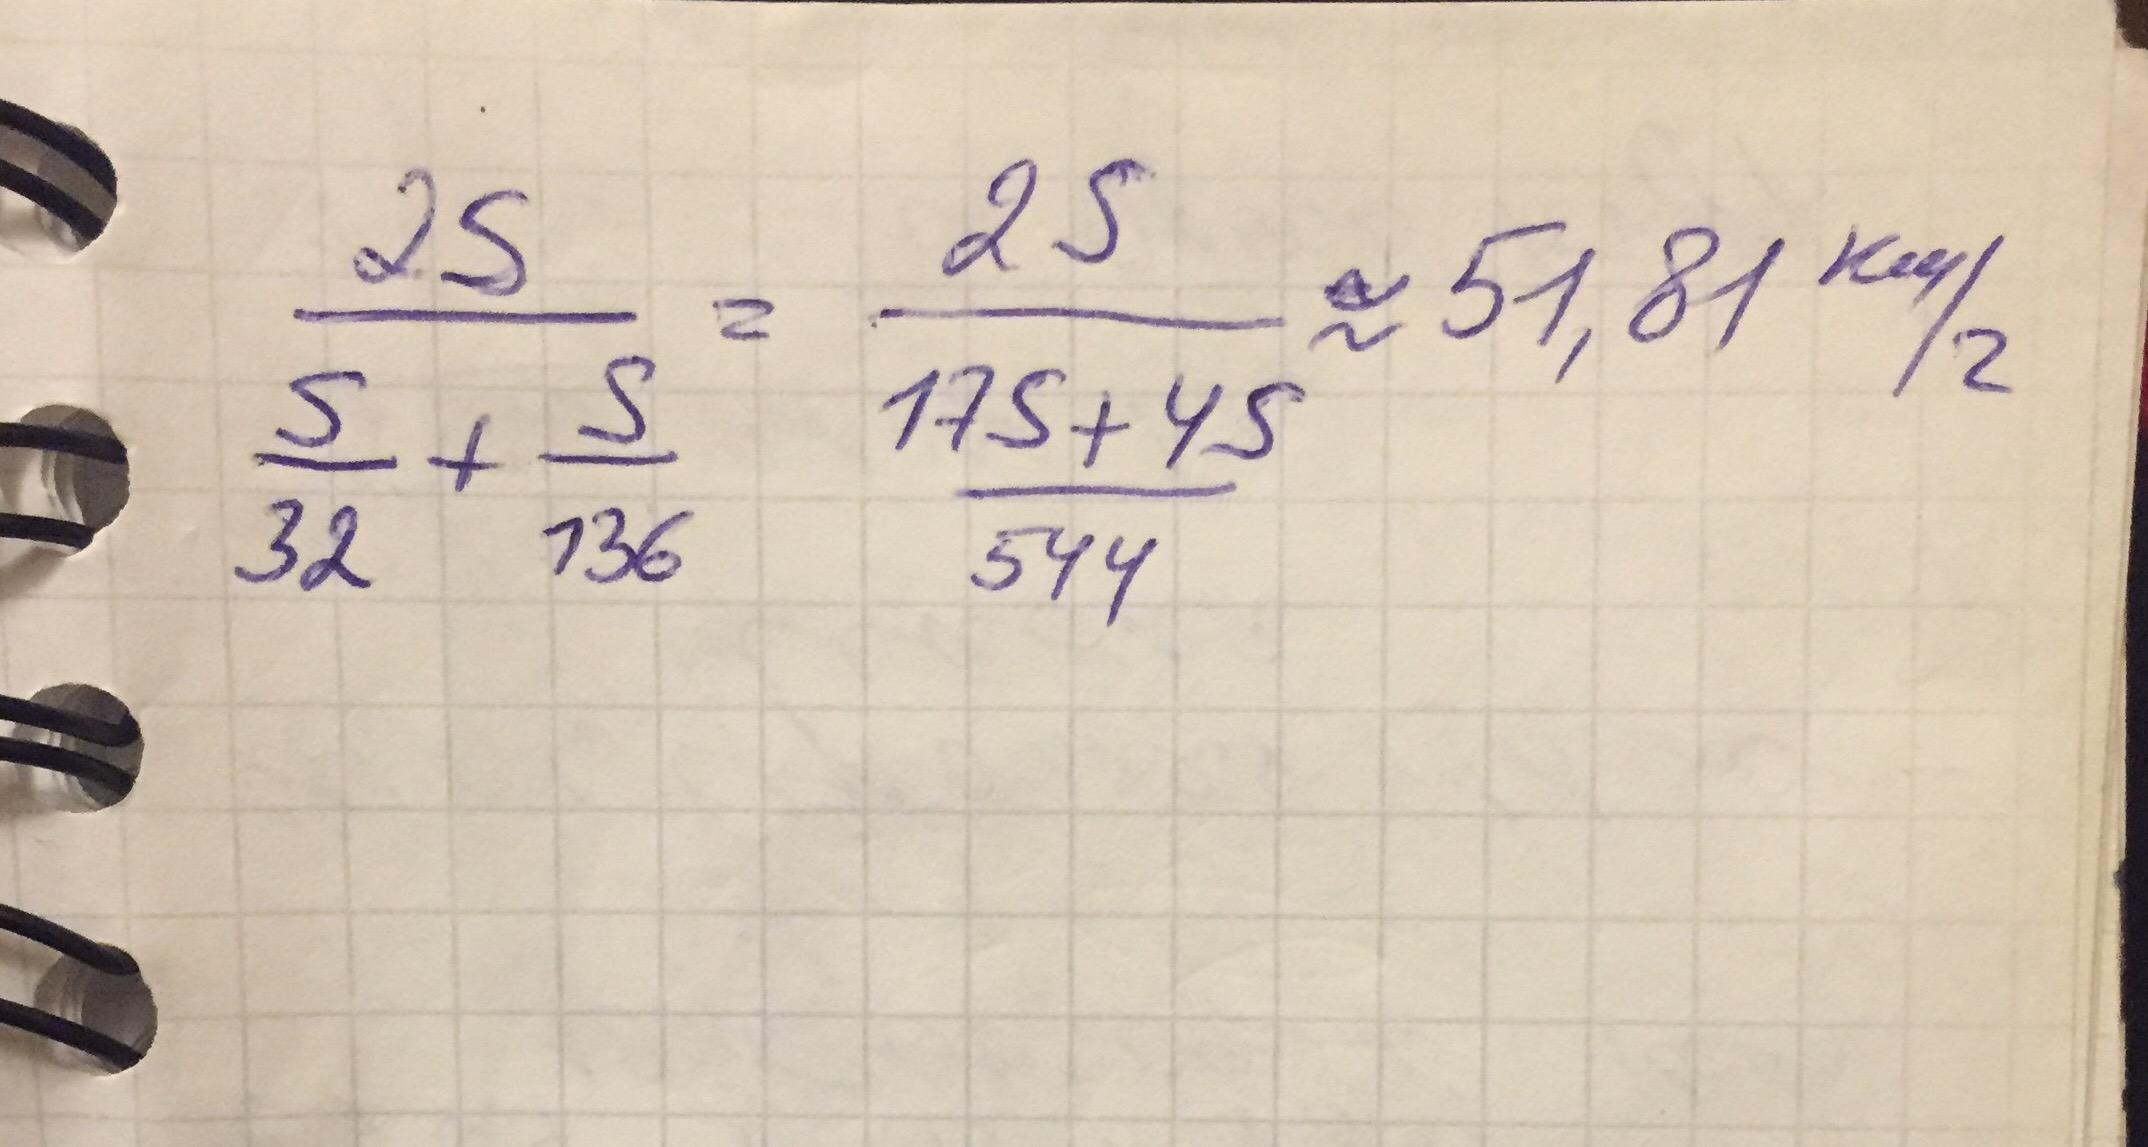 2S / (S/32 + S/136) = 2S / ((17S + 4S)/544) ≈ 51,81 км/г